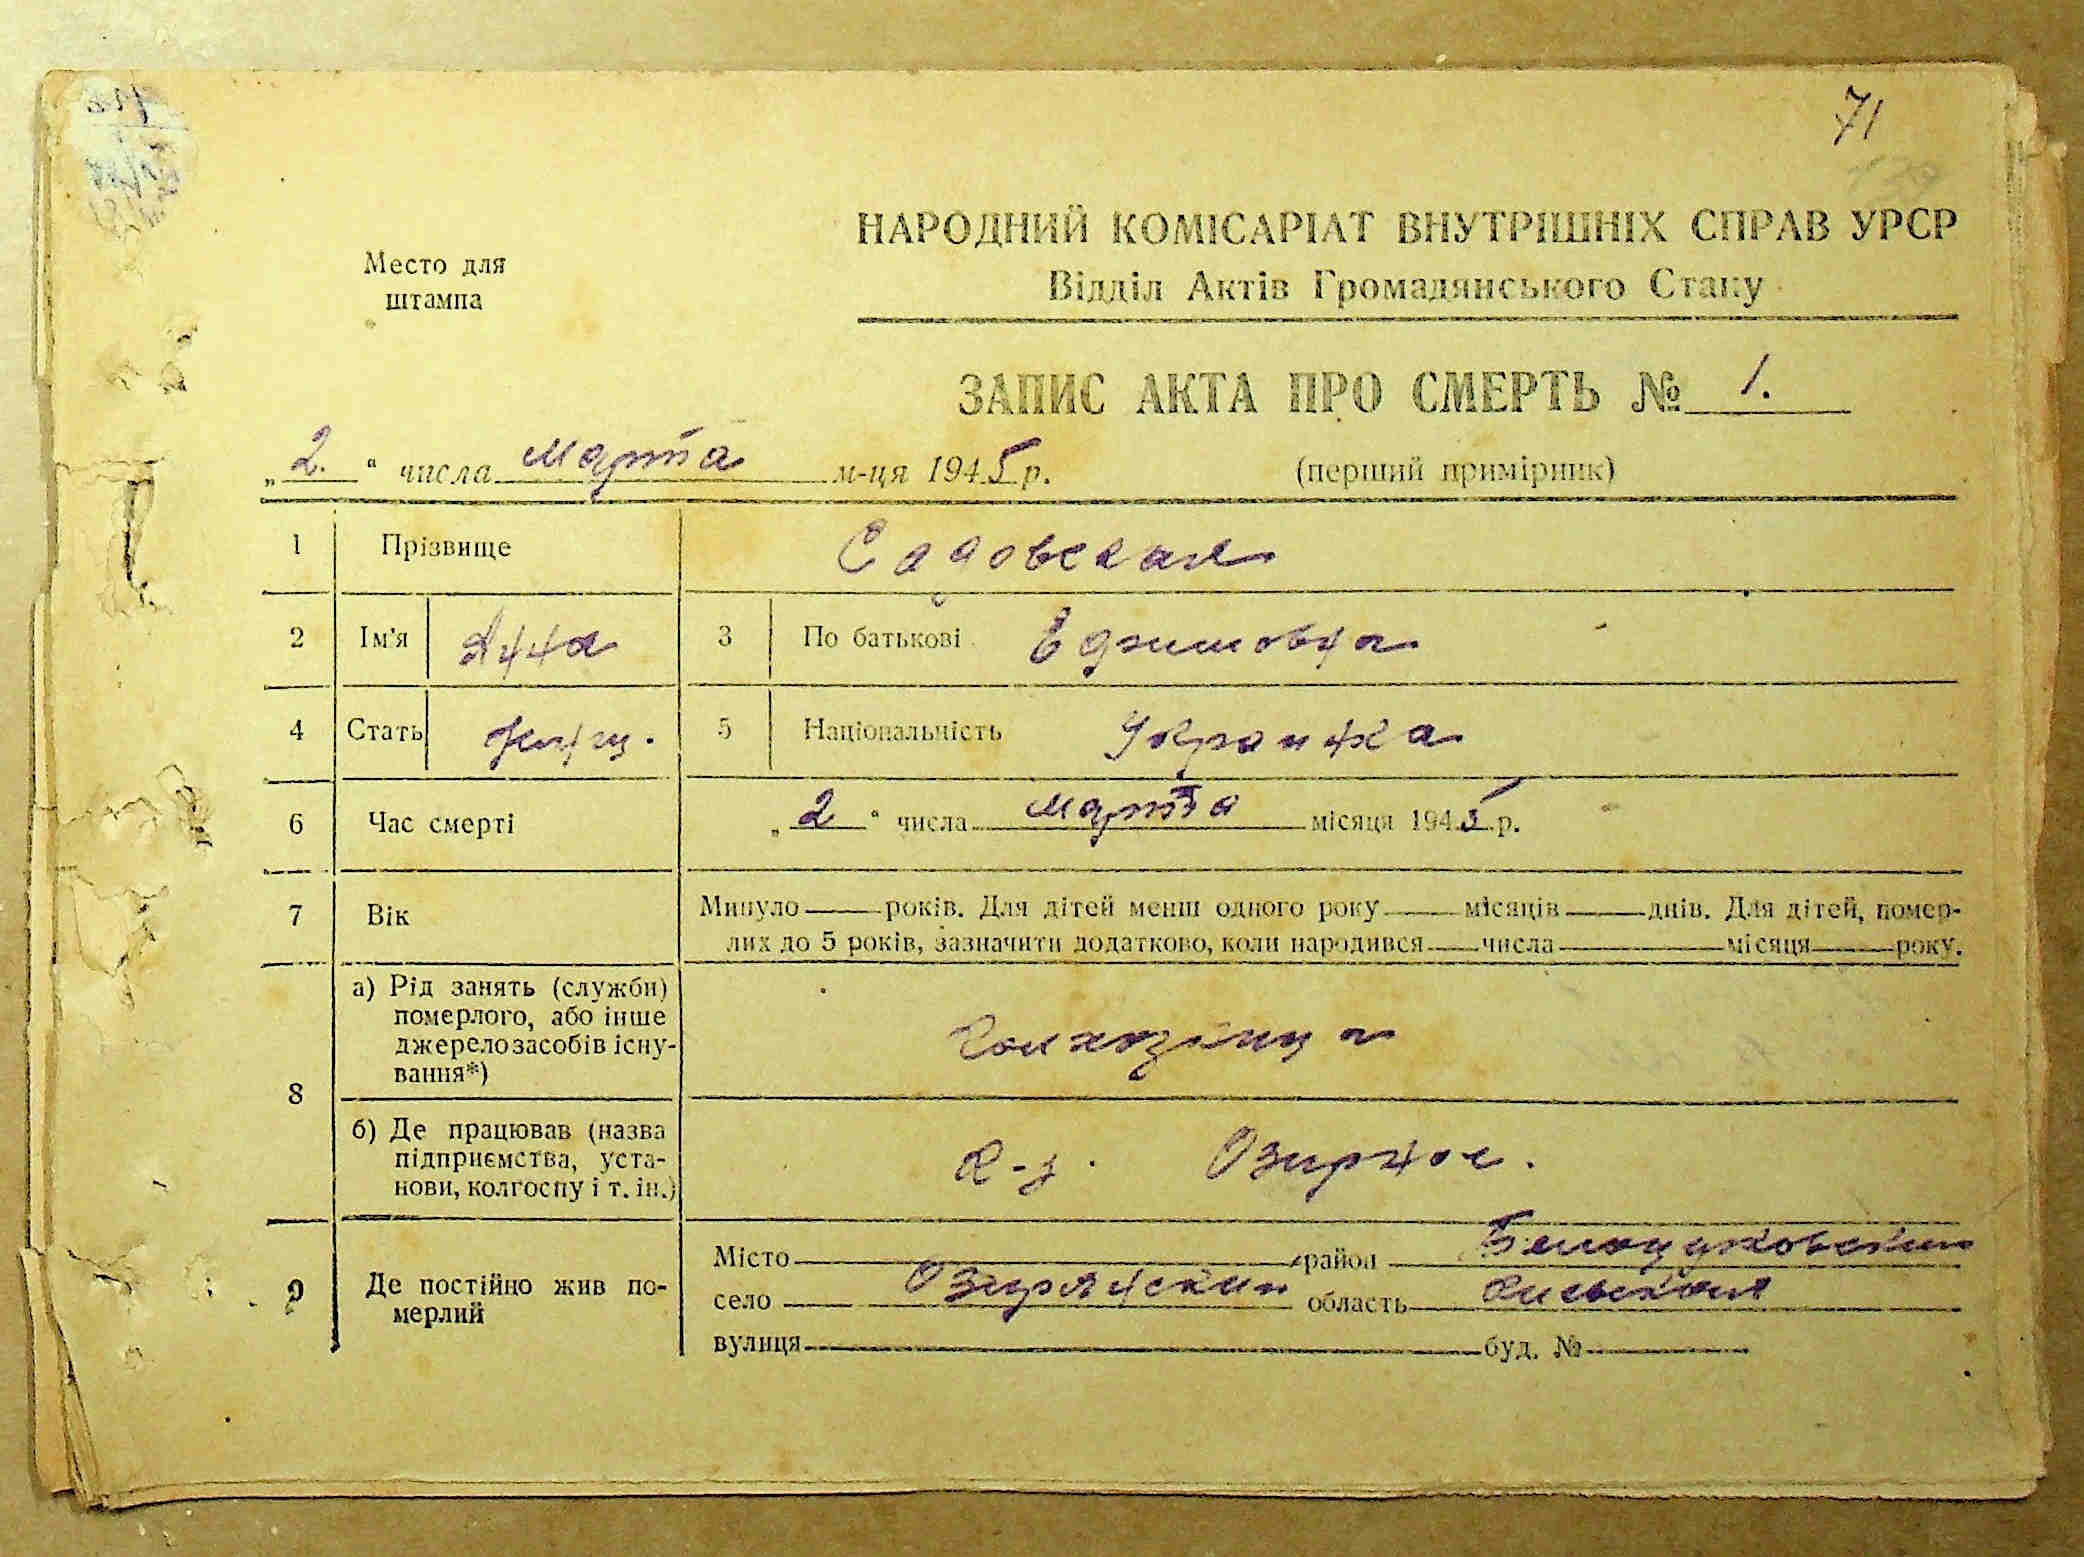 71
139
НАРОДНИЙ КОМІСАРІАТ ВНУТРІШНІХ СПРАВ УРСР
Место для
штампа
Відділ Актів Громадянського Стану
ЗАПИС АКТА ПРО СМЕРТЬ № 1.
„ 2. “ числа марта м-ця 1945 р. (перший примірник)
1 Прізвище Садовская
2 Ім'я Анна 3 По батькові Ефимовна
4 Стать женщ. 5 Національність Украинка
6 Час смерті „ 2 “ числа марта місяця 1945 р.
7 Вік Минуло —— років. Для дітей менш одного року —— місяців —— днів. Для дітей, помер-
лих до 5 років, зазначити додатково, коли народився —— числа —— місяця —— року.
8 а) Рід занять (служби)
померлого, або інше
джерело засобів існу-
вання*) Колхозница
б) Де працював (назва
підприємства, уста-
нови, колгоспу і т. ін.) К-з. Озирное.
9 Де постійно жив по-
мерлий
Місто район Белоцерковский
село Озирянский область Киевская
вулиця буд. №